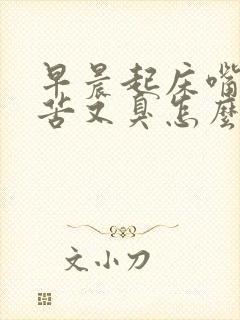 早晨起床嘴
苦又臭怎麼
文小刀